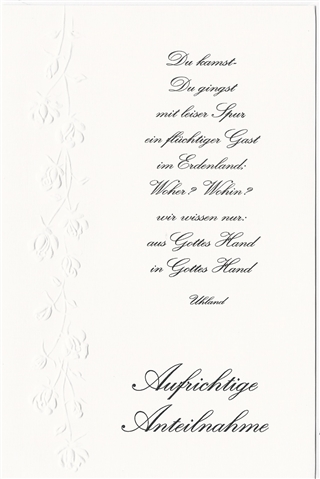 Du kamst-
Du gingst
mit leiser Spur
ein flüchtiger Gast
im Erdenland;
Woher? Wohin?
wir wissen nur:
aus Gottes Hand
in Gottes Hand
Uhland
Aufrichtige
Anteilnahme